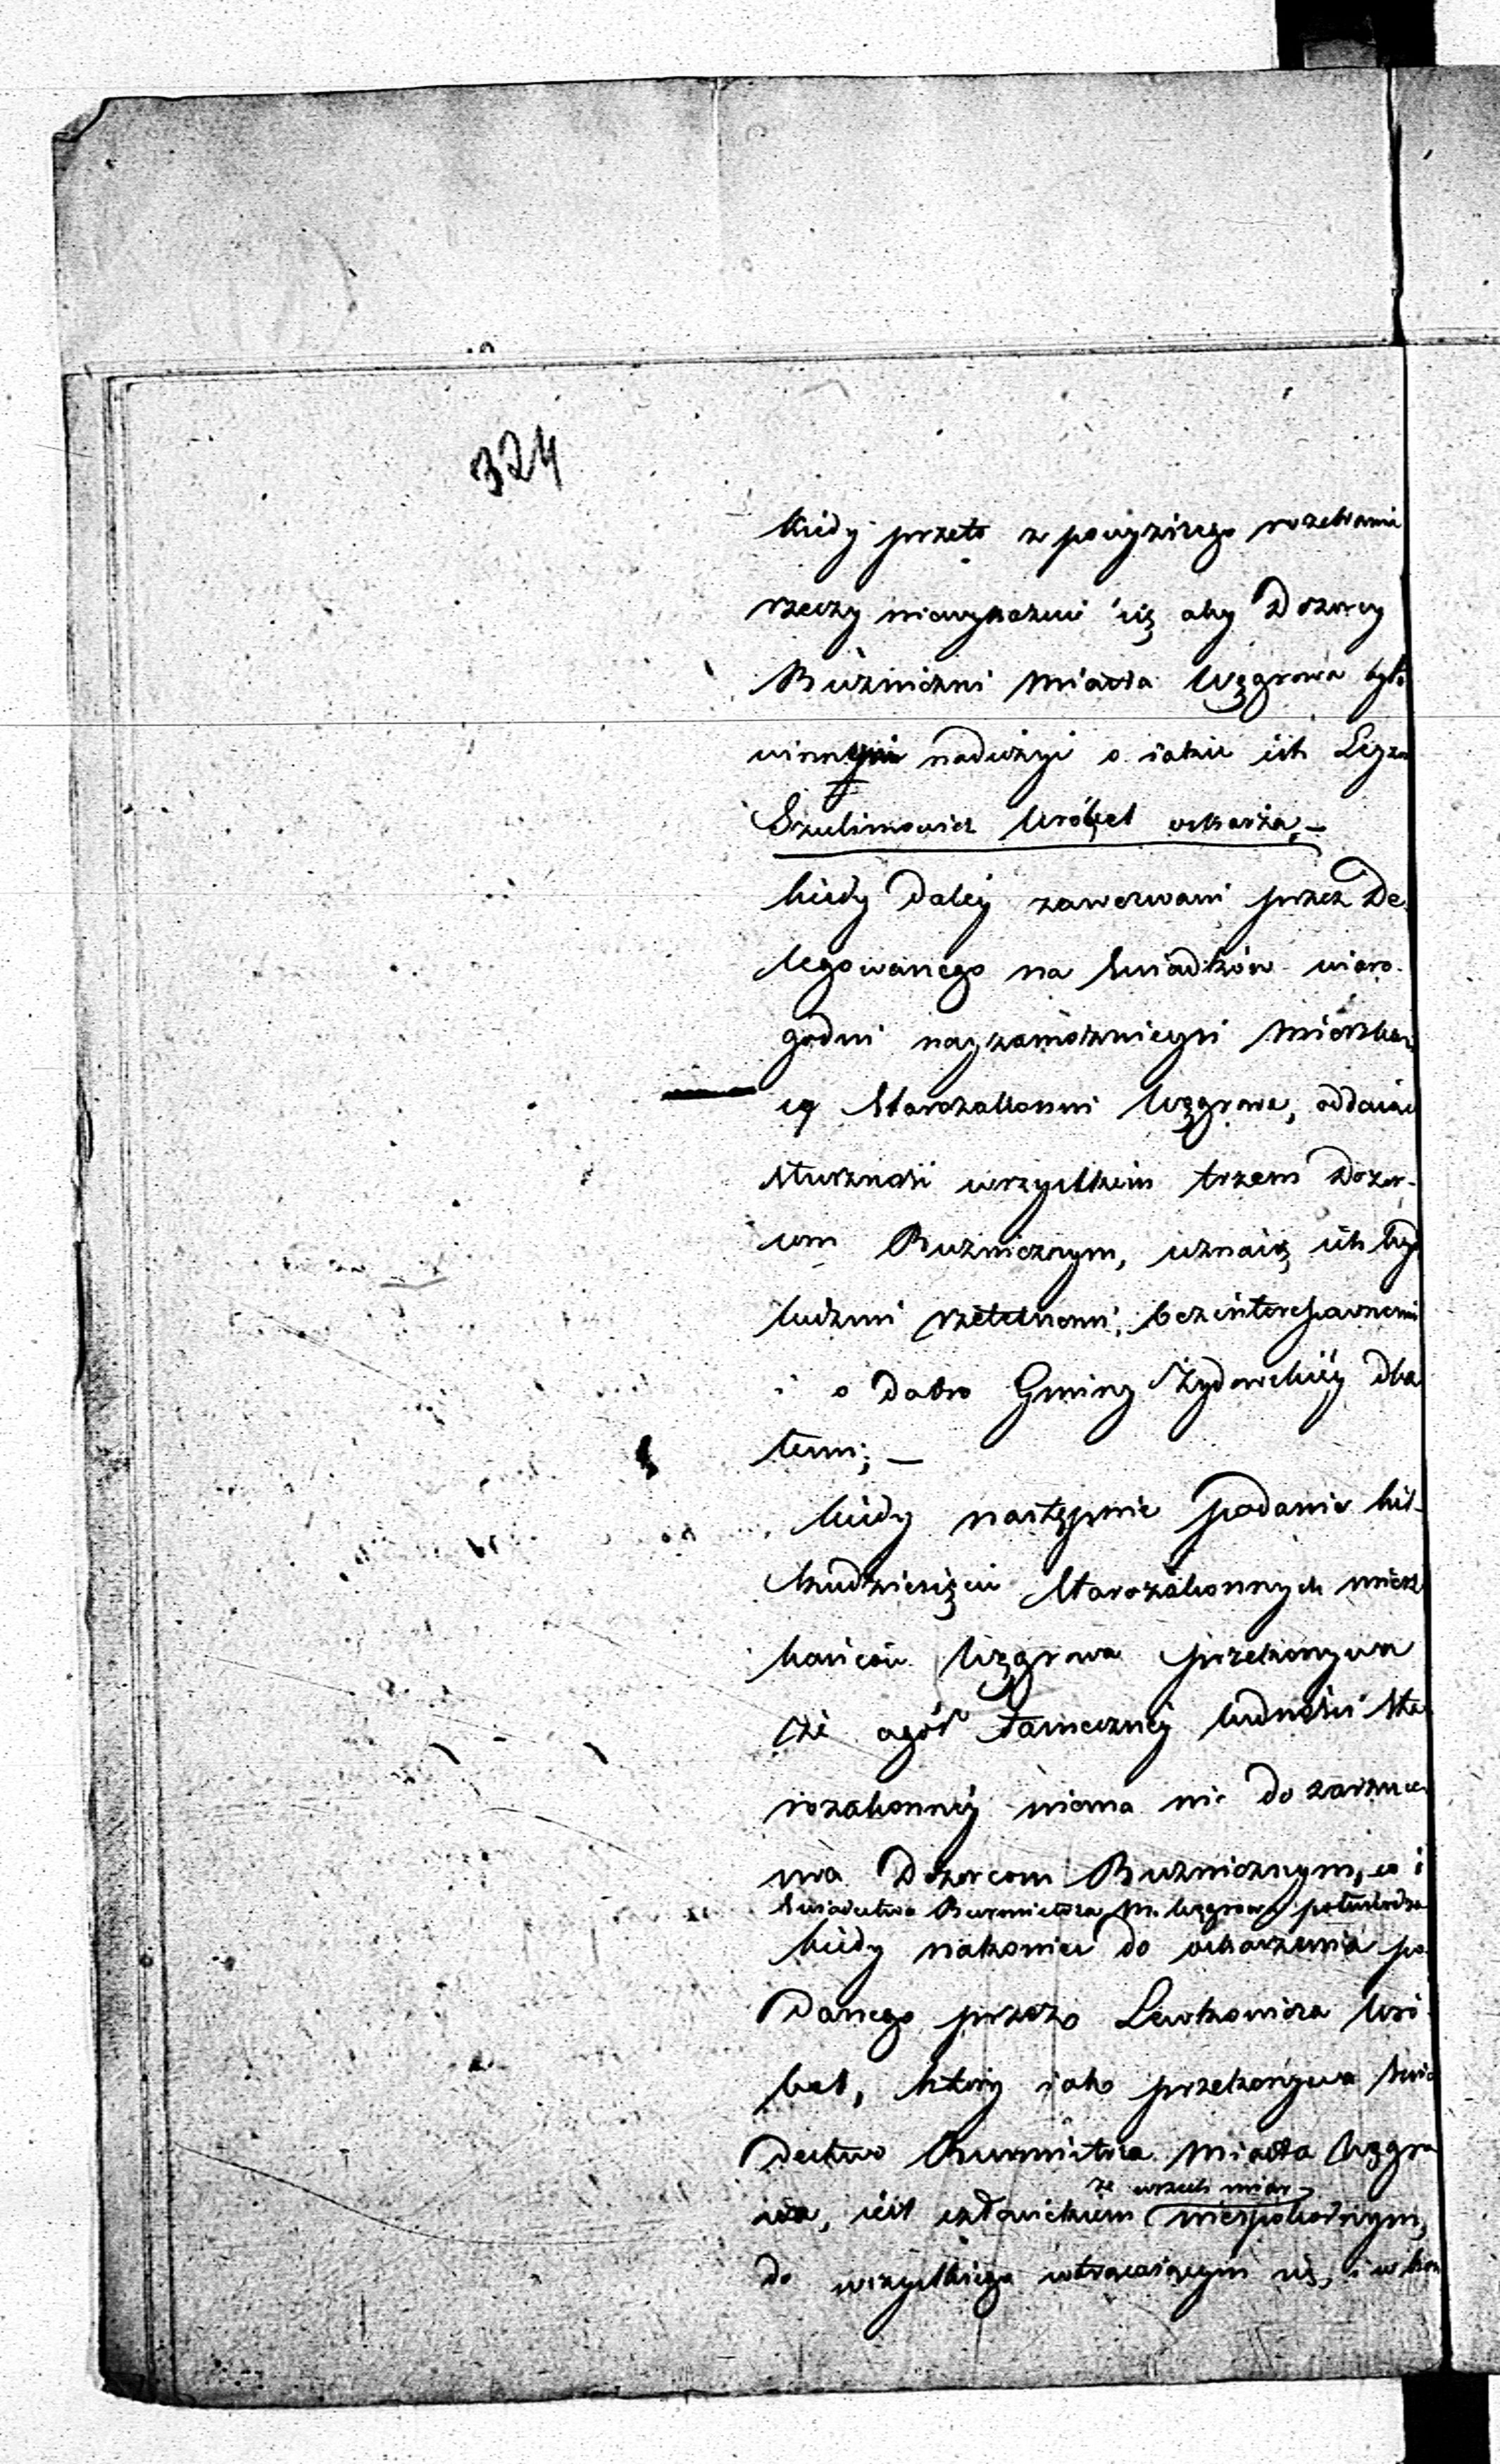 324
kiedy przeto z powyższego rozebrania
rzeczy niewykazuie się aby Dozorcy
Buźniczni Miasta Węgrowa byli
winnymi nadużyć o iakie ich Leyzor
Szulimowicz Wróbel oskarża,—
kiedy daley zawezwani przez De-
legowanego na Swiadków wiaro-
godni nayzamożnieysi Mieszkań
cy Starozakonni Węgrowa, oddaiąc
słuszność wszystkim trzem Dozor-
com Buznicznym, uznaią ich być
ludźmi rzetelnemi, bezinteressownemi
i o dobro Gminy Żydowskiéy dba
łemi; —
kiedy następnie podanie kil-
kudziesięciu Starozakonnych miesz
kańców Węgrowa przekonywa
że ogół tameczney ludności Sta
rozakonnéy niema nic do zarzuce
nia Dozorcom Buznicznym, co i
Swiadectwo Burmistrza M. Węgrowa potwierdza
kiedy nakoniec do oskarżenia po
danego przez Lewkowicza Wró
bel, który iako przekonywa Swia
dectwo Burmistrza Miasta Węgro
wa, iest człowiekiem niespokoynym,
ze wszech miar
do wszystkiego wtrącaiącym się, i w kon